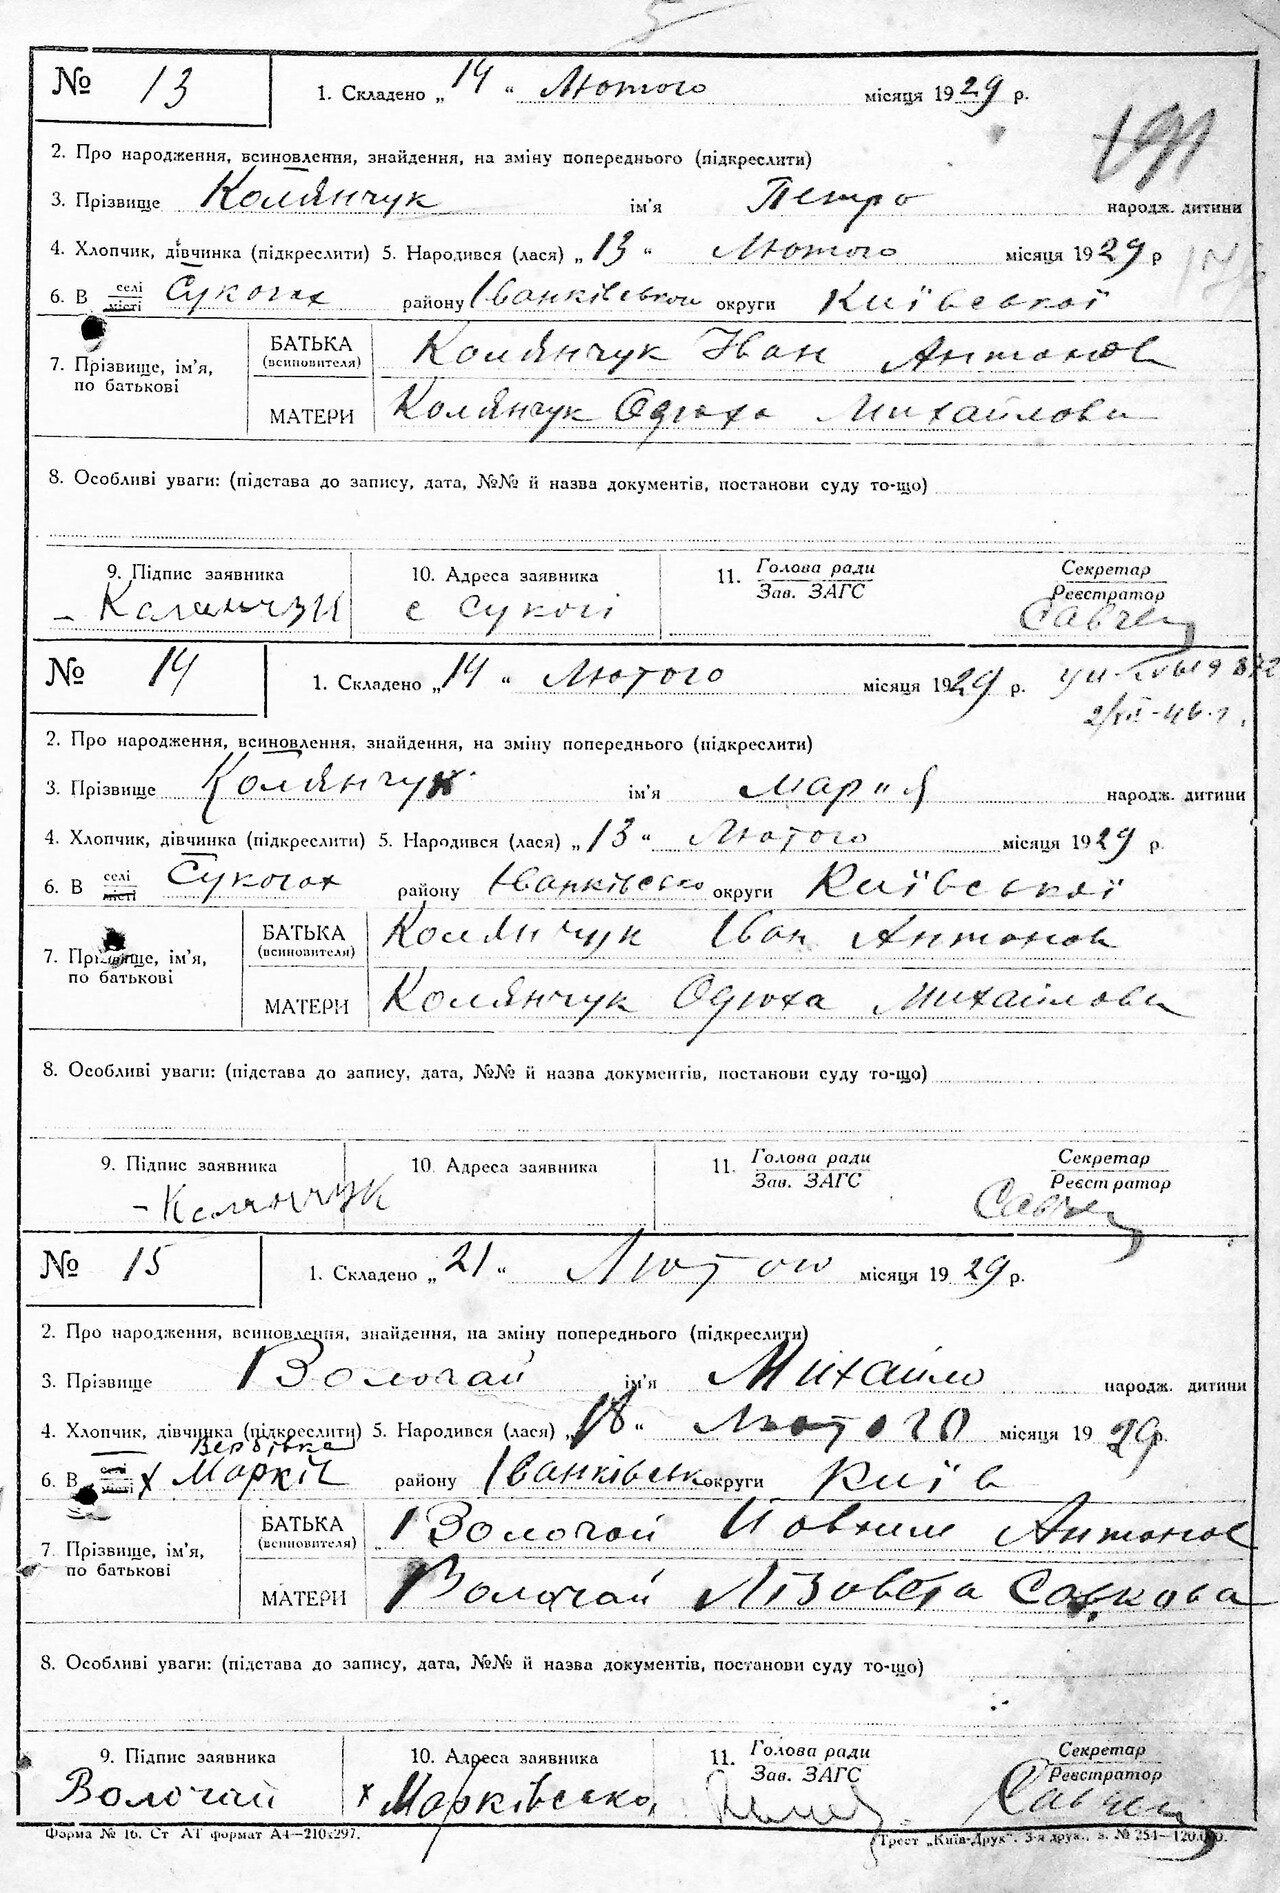 № 13 1. Складено „14“ Лютого місяця 1929 р.
2. Про народження, всиновлення, знайдення, на зміну попереднього (підкреслити)
3. Прізвище Колянчук ім'я Петро народж. дитини
4. Хлопчик, дівчинка (підкреслити) 5. Народився (лася) „13“ Лютого місяця 1929 р
6. В селі місті Сукачах району Іванківськои округи Київської
7. Прізвище, ім'я, по батькові БАТЬКА (всиновителя) Колянчук Іван Антонов
МАТЕРИ Колянчук Одюха Михайлови
8. Особливі уваги: (підстава до запису, дата, №№ й назва документів, постанови суду то-що)
9. Підпис заявника 10. Адреса заявника 11. Голова ради Зав. ЗАГС Секретар Реєстратор
с Сукачі
№ 14 1. Складено „14“ Лютого місяця 1929 р.
2. Про народження, всиновлення, знайдення, на зміну попереднього (підкреслити)
3. Прізвище Колянчук ім'я Мария народж. дитини
4. Хлопчик, дівчинка (підкреслити) 5. Народився (лася) „13“ Лютого місяця 1929 р.
6. В селі місті Сукачах району Іванківсько округи Київської
7. Прізвище, ім'я, по батькові БАТЬКА (всиновителя) Колянчук Іван Антонов
МАТЕРИ Колянчук Одюха Михайлови
8. Особливі уваги: (підстава до запису, дата, №№ й назва документів, постанови суду то-що)
9. Підпис заявника 10. Адреса заявника 11. Голова ради Зав. ЗАГС Секретар Реєстратор
Колянчук
№ 15 1. Складено „21“ Лютого місяця 1929 р.
2. Про народження, всиновлення, знайдення, на зміну попереднього (підкреслити)
3. Прізвище Волочай ім'я Михайло народж. дитини
4. Хлопчик, дівчинка (підкреслити) 5. Народився (лася) „18“ Лютого місяця 1929 р.
Вербівка
6. В селі місті х Маркіч району Іванківськ округи Київ
7. Прізвище, ім'я, по батькові БАТЬКА (всиновителя) Волочай Йовхим Антонов
МАТЕРИ Волочай Лізовєта Савкова
8. Особливі уваги: (підстава до запису, дата, №№ й назва документів, постанови суду то-що)
9. Підпис заявника 10. Адреса заявника 11. Голова ради Зав. ЗАГС Секретар Реєстратор
Волочай х Марківсько,
Форма № 16. Ст АТ формат А4—210х297. Трест „Київ-Друк". 3-я друк., з. № 254—120.000.